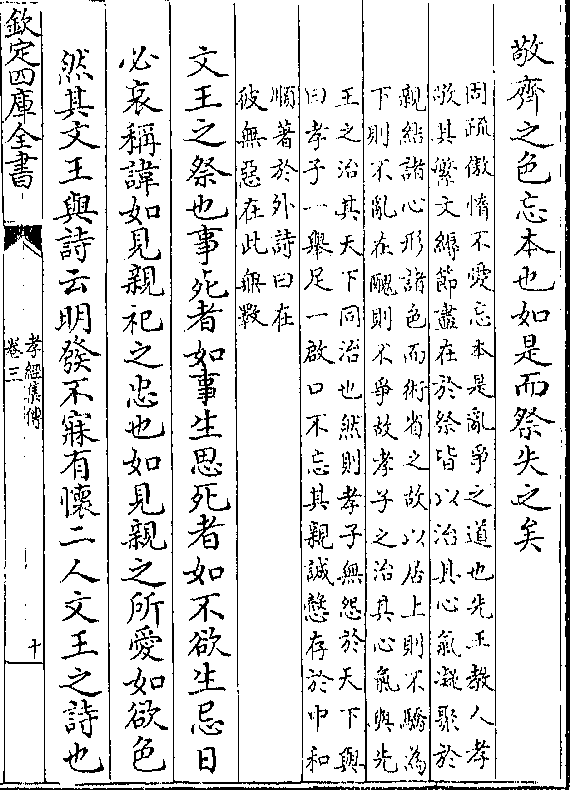 敬齊之色忘本也如是而祭失之矣
固疏傲惰不愛忘本是亂爭之道也先王教人孝
敬其繁文縟節盡在於祭皆以治其心氣凝聚於
親結諸心形諸色而術省之故以居上則不驕為
下則不亂在醜則不爭故孝子之治其心氣與先
王之治其天下同治也然則孝子無怨於天下與
曰孝子一舉足一啟口不忘其親誠慤存於中和
順著於外詩曰在
彼無惡在此無斁
文王之祭也事死者如事生思死者如不欲生忌日
必哀稱諱如見親祀之忠也如見親之所愛如欲色
然其文王與詩云明發不寐有懷二人文王之詩也
欽定四庫全書
孝經集傳
卷三
十